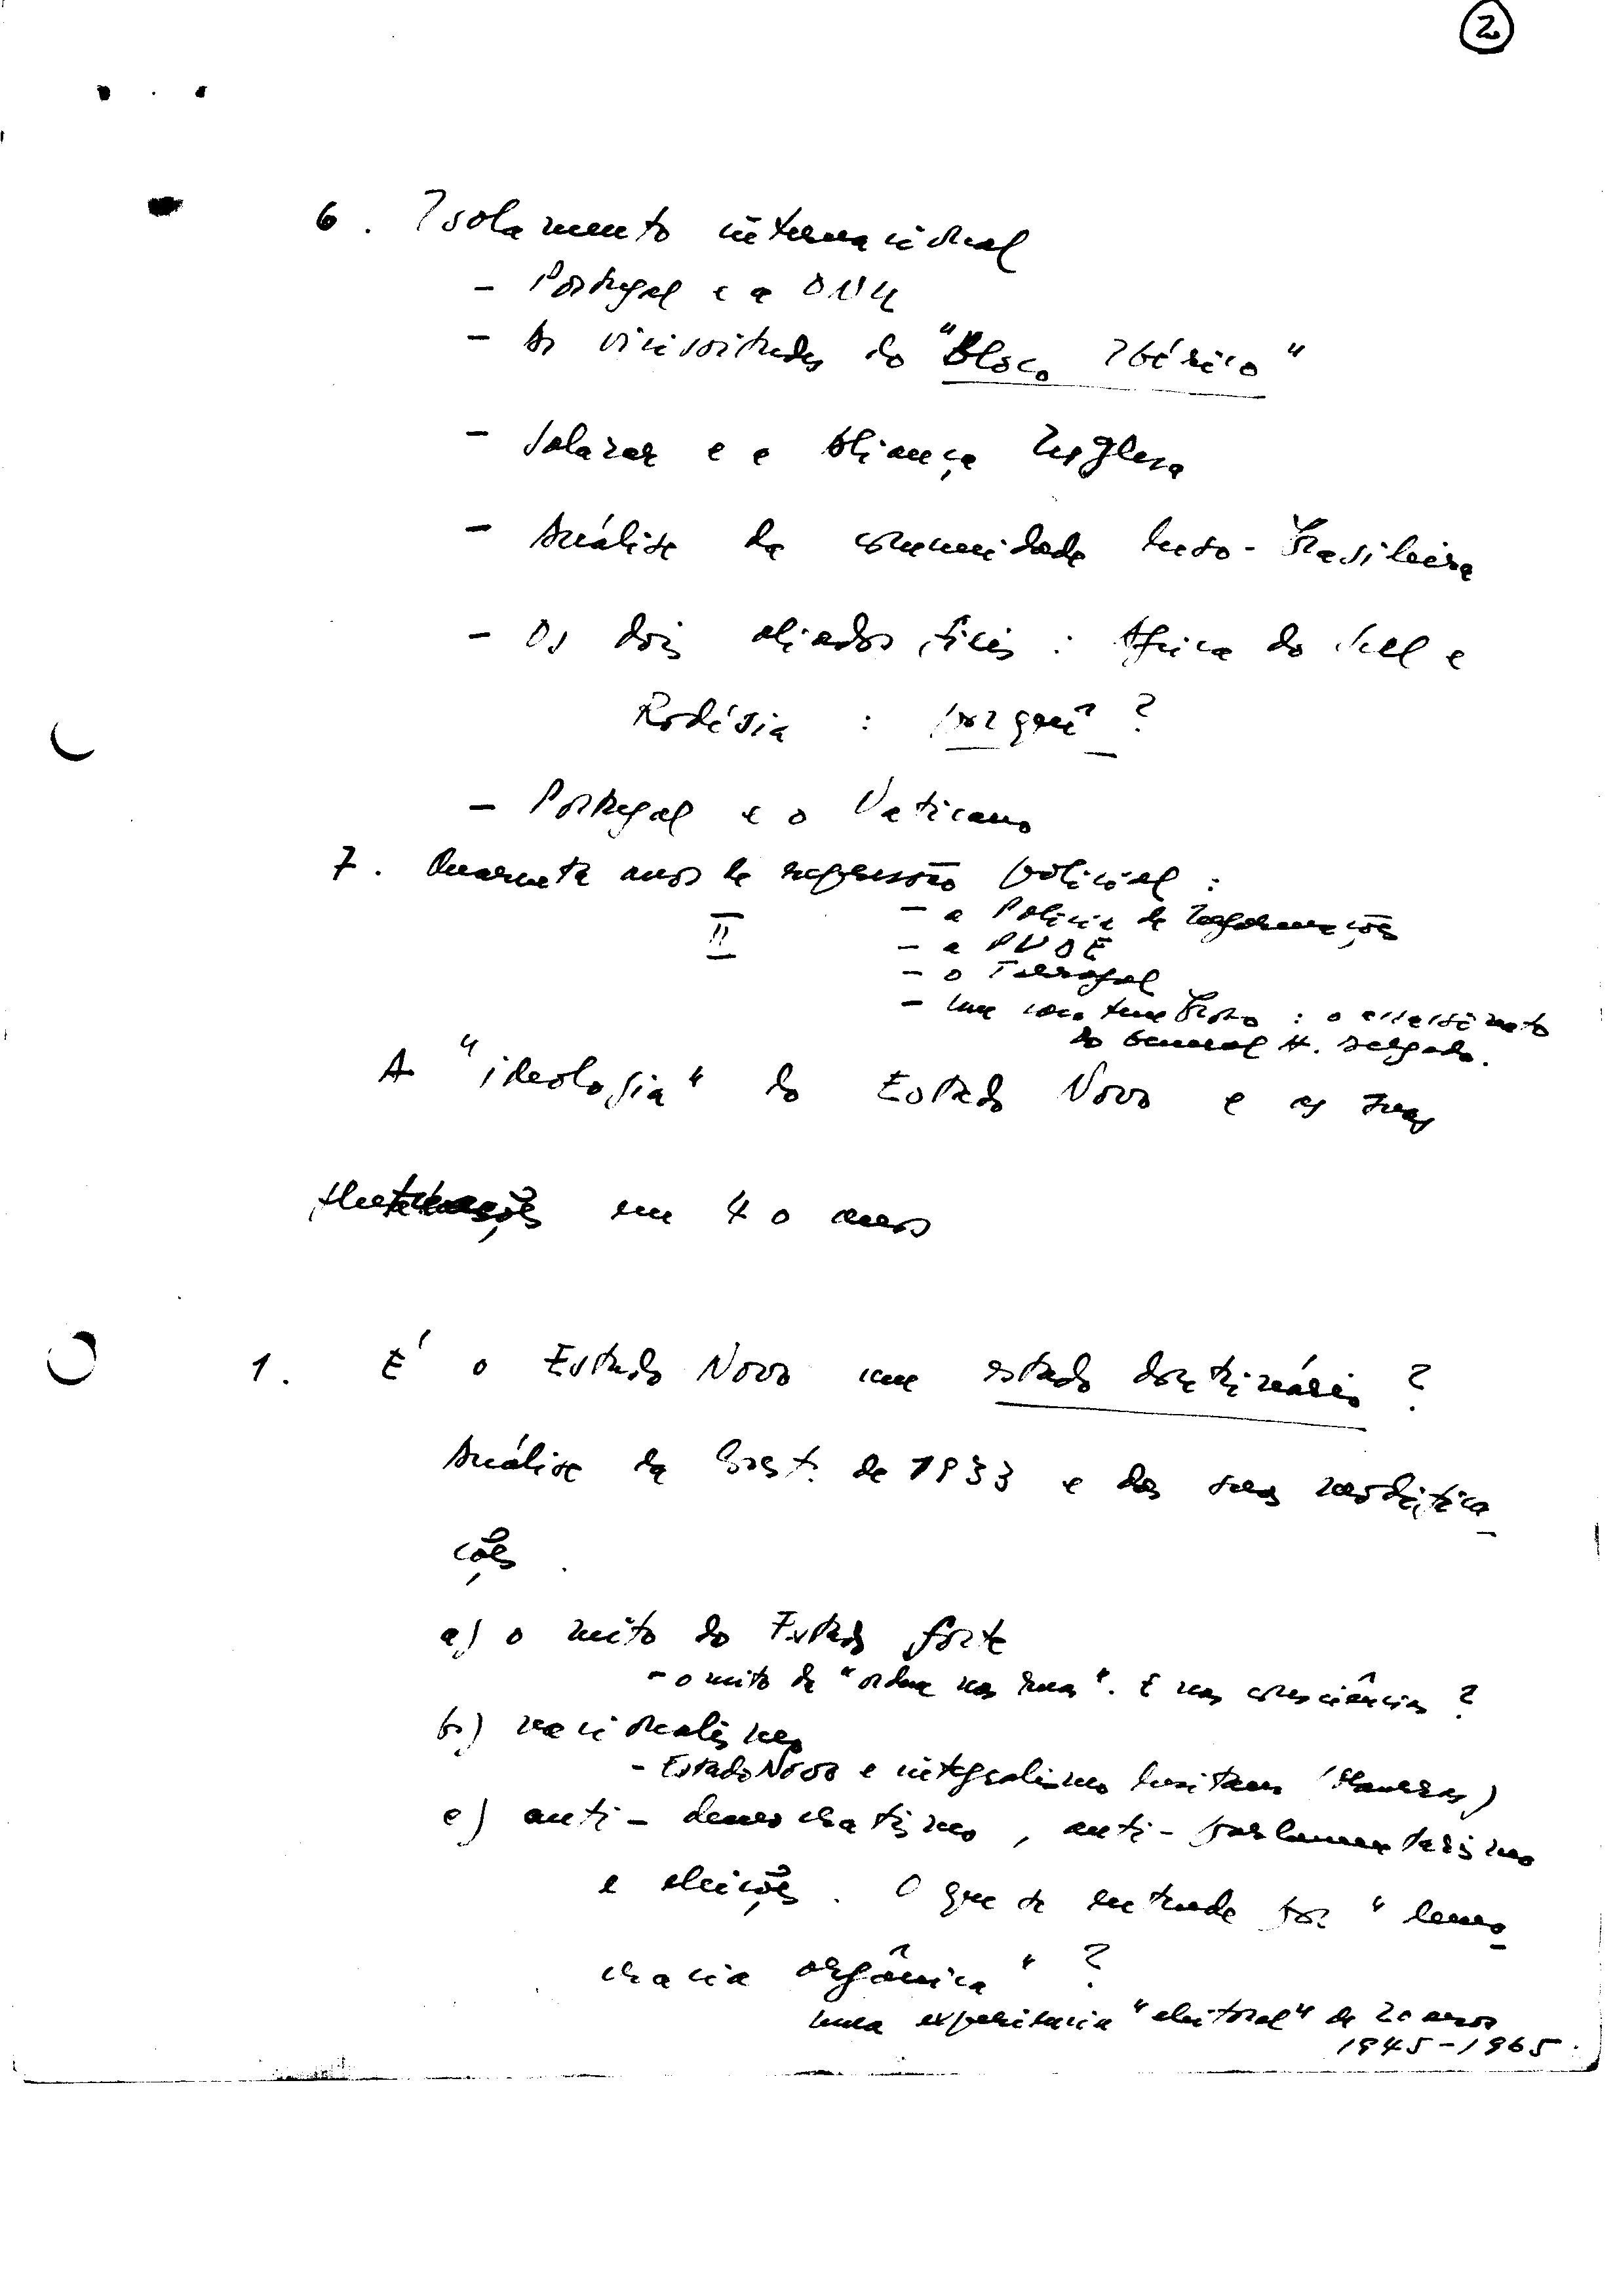 2
6. Isolamento internacional
- Portugal e a ONU
- As vicissitudes do "Bloco Ibérico"
- Salazar e a Aliança Inglesa
- Análise da comunidade luso-brasileira
- Os dois aliados fiéis : Africa do Sul e
Rodésia : porquê ?
- Portugal e o Vaticano
7. Quarenta anos de repressão policial :
- a Policia de Informações
- a PVDE
- o Tarrafal
II
- um caso tenebroso : o assassinato
do General H. Delgado.
A "ideologia" do Estado Novo e as suas
flutuações em 40 anos
1. É o Estado Novo um estado doutrinário ?
Análise da Const. de 1933 e das suas modifica-
ções .
a) o mito do Estado forte
- o mito da "ordem nas ruas". E nas consciências ?
b) nacionalismo
- Estado Novo e integralismo lusitano
c) anti-democratismo, anti-parlamentarismo
e eleições. O que se entende por "demo-
cracia orgânica" ?
uma experiencia "eleitoral" de 20 anos
1945-1965.